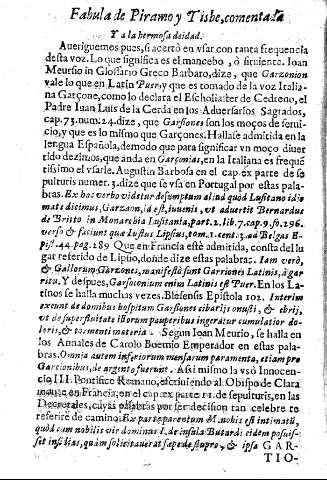 Fabula de Piramo y Tisbe, comentada
Y a la hermosa deidad.
Aueriguemos pues, si acertò en vsar con tanta frequencia
desta voz. Lo que significa es el mancebo, ò siruiente. Ioan
Meursio in Glossario Greco Barbaro, dize, que Garzonion
vale lo que en Latin Puer, y que es tomado de la voz Italia-
na Garçone, como lo declara el Escholiaster de Cedreno, el
Padre Iuan Luis de la Cerda en los Aduersarios Sagrados,
cap. 75. num. 24. dize, que Garsiones son los moços de serui-
cio, y que es lo mismo que Garçones. Hallase admitida en la
lengua Española, demodo que para significar vn moço diuer
tido dezimos, que anda en Garçonias, en la Italiana es freque
tissimo el vsarle. Augustin Barbosa en el cap. ex parte de se
pulturis numer. 3. dize que se vsa en Portugal por estas pala-
bras. Ex hoc verbo videtur desumptum aliud quod Lusitano idio
mate dicimus, Garzaon, id est, iuuenis, vt aduertit Bernardus
de Britto in Monarchia Lusitania, part. 2. lib. 7. cap. 9. fo. 296.
verso & faciunt quæ Iustus Lipsius, tom. 1. cent. 3. ad Belgas E-
pist. 44. pag. 289 Que en Francia estè admitida, consta del lu
gar referido de Lipsio, donde dize estas palabras. Iam verò,
& Gallorum Garzones, manifestò sunt Garriones Latinis, à gar
ritu. Y despues, Garsoonium enim Latinis est Puer. En los La-
tinos se halla muchas vezes. Blesensis Epistola 102. Interim
exeunt de domibus hospitum Garsiones cibarijs onusti, & ebrij,
vt de superfluitate illorum pauperibus ingeratur cumulatior do-
loris, & tormenti materia. Segun Ioan Meurio, se halla en
los Annales de Carolo Boemio Emperador en estas pala-
bras. Omnia autem inferiorum mensarum paramenta, etiam pro
Garcionibus, de argento fuerunt. Assi mismo la vsò Innocen-
cio III. Pontifice Romano, escriuiendo al Obispo de Clara
monte en Francia, en el cap. ex parte 11. de sepulturis, en las
Decretales, cuyas palabras por ser decision tan celebre to
referirè de camino. Ex parte parentum M. nobis est intimatū,
quòd cum nobilis vir dominus I. de insula Butardi eidem posuis-
set insidias, quàm solicitauerat sæpe de stupro, & ipsa GAR-
TIO-